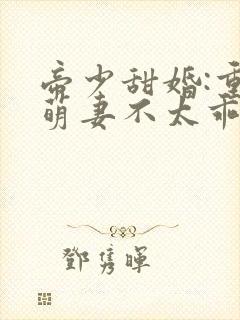 帝少甜婚:重
萌妻不太乖
鄧隽暉